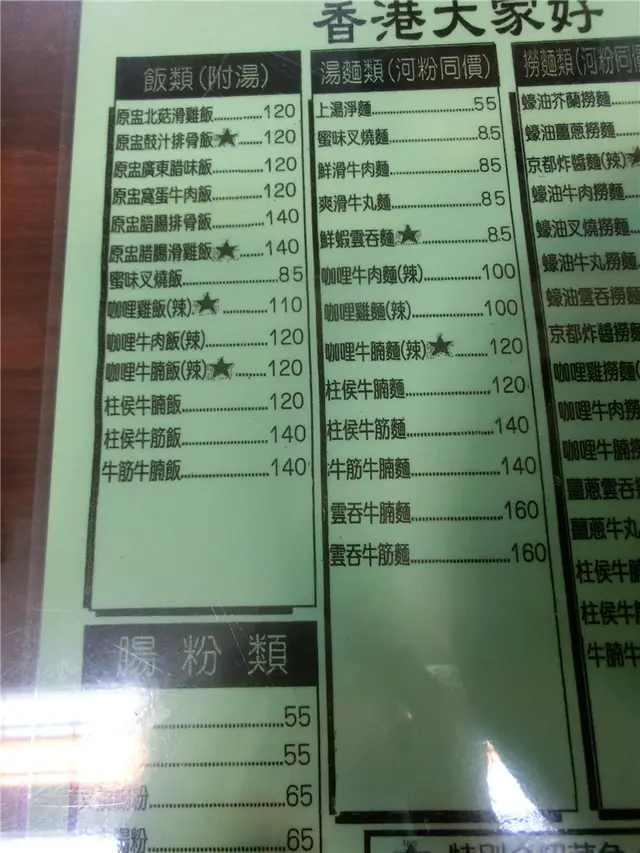 香港大家好
飯類(附湯)
原盅北菇滑雞飯 120
原盅豉汁排骨飯★ 120
原盅廣東腊味飯 120
原盅窩蛋牛肉飯 120
原盅腊腸排骨飯 140
原盅腊腸滑雞飯★ 140
蜜味叉燒飯 85
咖哩雞飯(辣)★ 110
咖哩牛肉飯(辣) 120
咖哩牛腩飯(辣)★ 120
柱侯牛腩飯 120
柱侯牛筋飯 140
牛筋牛腩飯 140
腸粉類
55
55
粉 65
腸粉 65
湯麵類(河粉同價)
上湯淨麵 55
蜜味叉燒麵 85
鮮滑牛肉麵 85
爽滑牛丸麵 85
鮮蝦雲吞麵★ 85
咖哩牛肉麵(辣) 100
咖哩雞麵(辣) 100
咖哩牛腩麵(辣)★ 120
柱侯牛腩麵 120
柱侯牛筋麵 140
牛筋牛腩麵 140
雲吞牛腩麵 160
雲吞牛筋麵 160
撈麵類(河粉同價
蠔油芥蘭撈麵
蠔油薑蔥撈麵
京都炸醬麵(辣)★
蠔油牛肉撈麵
蠔油叉燒撈麵
蠔油牛丸撈麵
蠔油雲吞撈麵
京都炸醬撈麵
咖哩雞撈麵(
咖哩牛肉撈
咖哩牛腩撈
薑蔥雲吞撈
薑蔥牛丸
柱侯牛腩
柱侯牛
牛腩牛